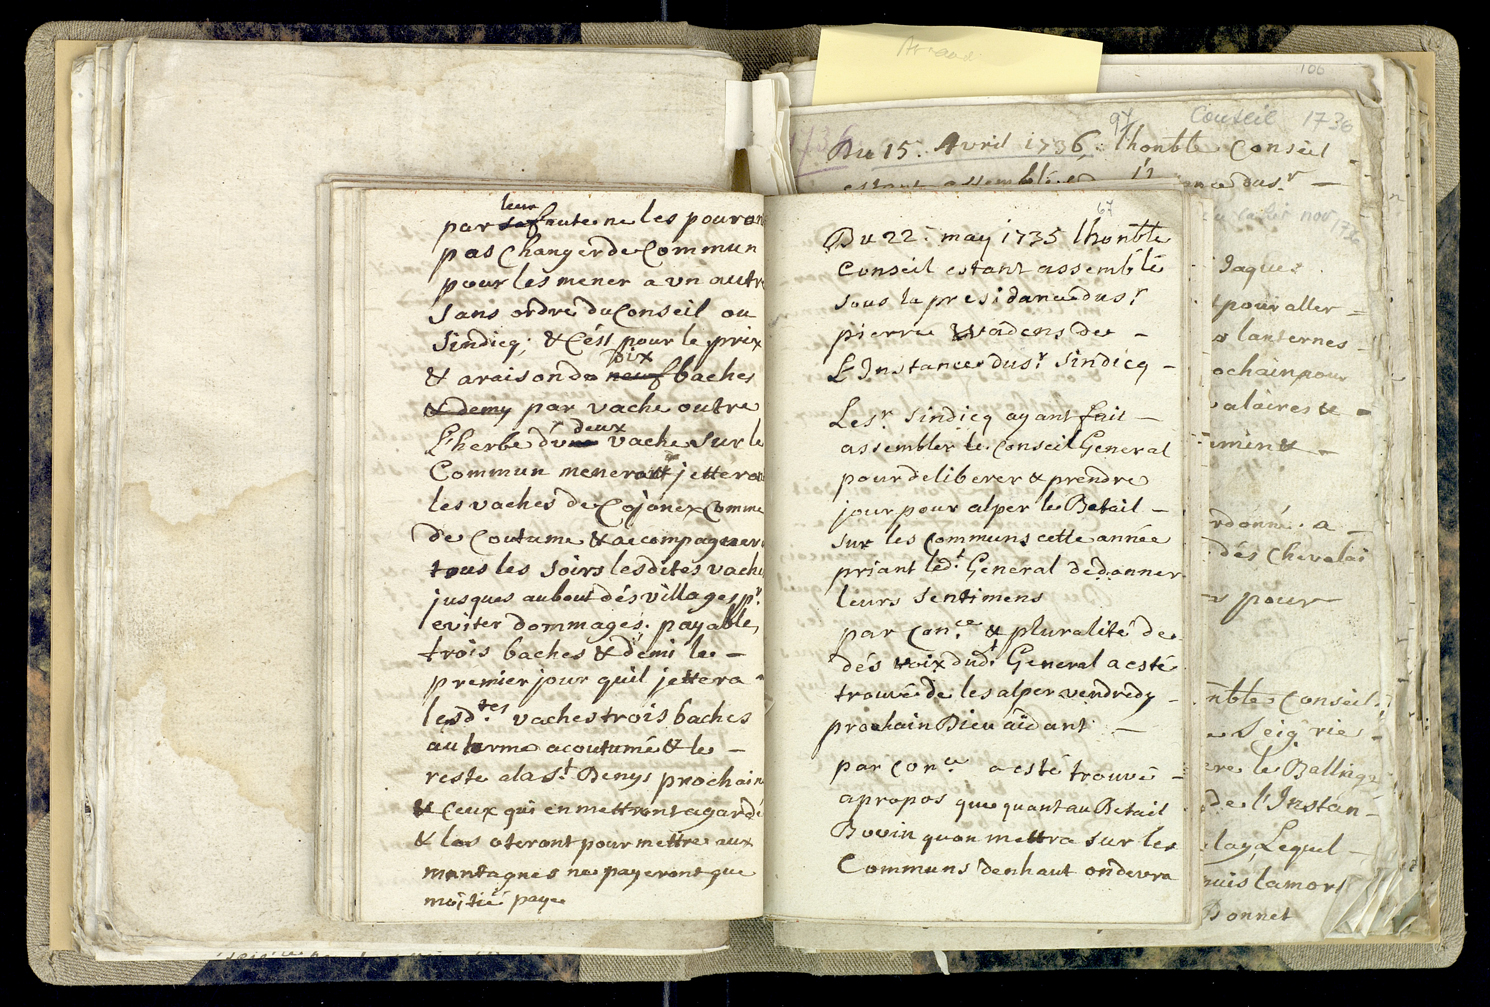 leur
par sa faute ne les pouront
pas Changer de Commun
pour les mener a vn autre
sans ordre du Conseil ou
Sindicq; & C'est pour le prix
dix
& a raison de neuf baches
& demy par vache outre
deux
L'herbe d'vne vache sur le
Commun menera & jettera
les vaches de Cojonex Comme
de Coutume & accompagnera
tous les soirs lesdites vaches
jusques au bout dés villages pr.
eviter dommages. payable,
trois baches & demi le –
premier jour quil jettera
lesdtes vaches trois baches
au terme acoutumé & le –
reste a la St Denys prochain
& Ceux qui en mettront a garde
& les oteront pour mettre aux
montagnes ne payeront que
moitié paye
67
Du 22: may 1735 lhonble
Conseil estant assemblé
sous la presidance du sr
pierre Wadens de –
L'Instance du sr Sindicq –
Le sr Sindicq ayant fait –
assembler le Conseil General
pour deliberer & prendre
jour pour alper le Betail –
sur les Communs cette année
priant ledt General de donner
leurs sentimens
par Conce & pluralité de
dés voix dudt General a esté
trouvé de les alper vendredy –
prochain Dieu aidant –
par Conce a esté trouvé –
apropos que quant au Betail
Bovin quon mettra sur les
Communs denhaut on devra
100
97 Conseil 1736
Du 15. Avril 1736. lhonble Conseil
estant assemblé
du sr –
Jaques
pour aller =
lanternes –
prochain pour
-
rdonné. a –
dés Chevalai
pour
nble Conseil
Seigrie
le Balling
de l'Instan-
Lequel –
puis la mort
Bonnet